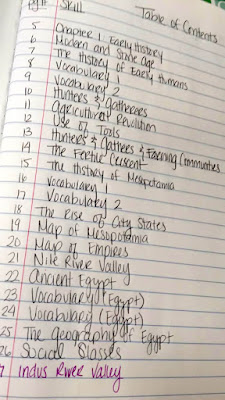 Pg# Skill Table of Contents
5 Chapter 1 Early History
6 Modern and Stone Age
7 The History of Early Humans
8 Vocabulary 1
9 Vocabulary 2
10 Hunters & Gatherers
11 Agricultural Revolution
12 Use of Tools
13 Hunters & Gathers & Farming Communities
14 The Fertile Cresent
15 The History of Mesopotamia
16 Vocabulary 1
17 Vocabulary 2
18 The Rise of City States
19 Map of Mesopotamia
20 Map of Empires
21 Nile River Valley
22 Ancient Egypt
23 Vocabulary (Egypt)
24 Vocabulary (Egypt)
25 The geography of Egypt
26 Social Classes
7 Indus River Valley